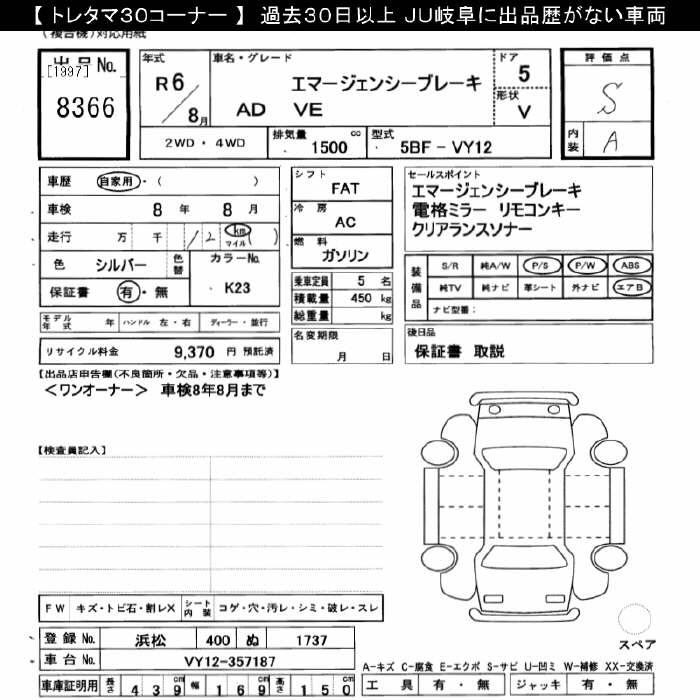 【トレタマ30コーナー】過去30日以上 JU岐阜に出品歴がない車両
(複合機)対応用紙
出品No.
[1997]
8366
年式 車名・グレード ドア
R6/8月 エマージェンシーブレーキ 5
AD VE 形状 V
2WD・4WD 排気量 1500 cc 型式 5BF-VY12
評価点
S
内装 A
車歴 自家用・( )
車検 8年 8月
走行 万 千 /2 km マイル ( )
色 シルバー 色替 カラーNo.
保証書 有・無 K23
モデル年式 年 ハンドル 左・右 ディーラー・並行
リサイクル料金 9,370 円 預託済
シフト FAT
冷房 AC
燃料 ガソリン
乗車定員 5 名
積載量 450 kg
総重量 kg
名変期限
月 日
セールスポイント
エマージェンシーブレーキ
電格ミラー リモコンキー
クリアランスソナー
装備品 S/R 純A/W P/S P/W ABS
純TV 純ナビ 革シート 外ナビ エアB
ナビ型番:
後日品
保証書 取説
【出品店申告欄(不良箇所・欠品・注意事項等)】
<ワンオーナー> 車検8年8月まで
【検査員記入】
FW キズ・トビ石・割レX シート内装 コゲ・穴・汚レ・シミ・破レ・スレ
登録No. 浜松 400 ぬ 1737
車台No. VY12-357187
車庫証明用 長さ 439cm 幅 169cm 高さ 150cm
スペア
A-キズ C-腐食 E-エクボ S-サビ U-凹ミ W-補修 XX-交換済
工具 有・無 ジャッキ 有・無